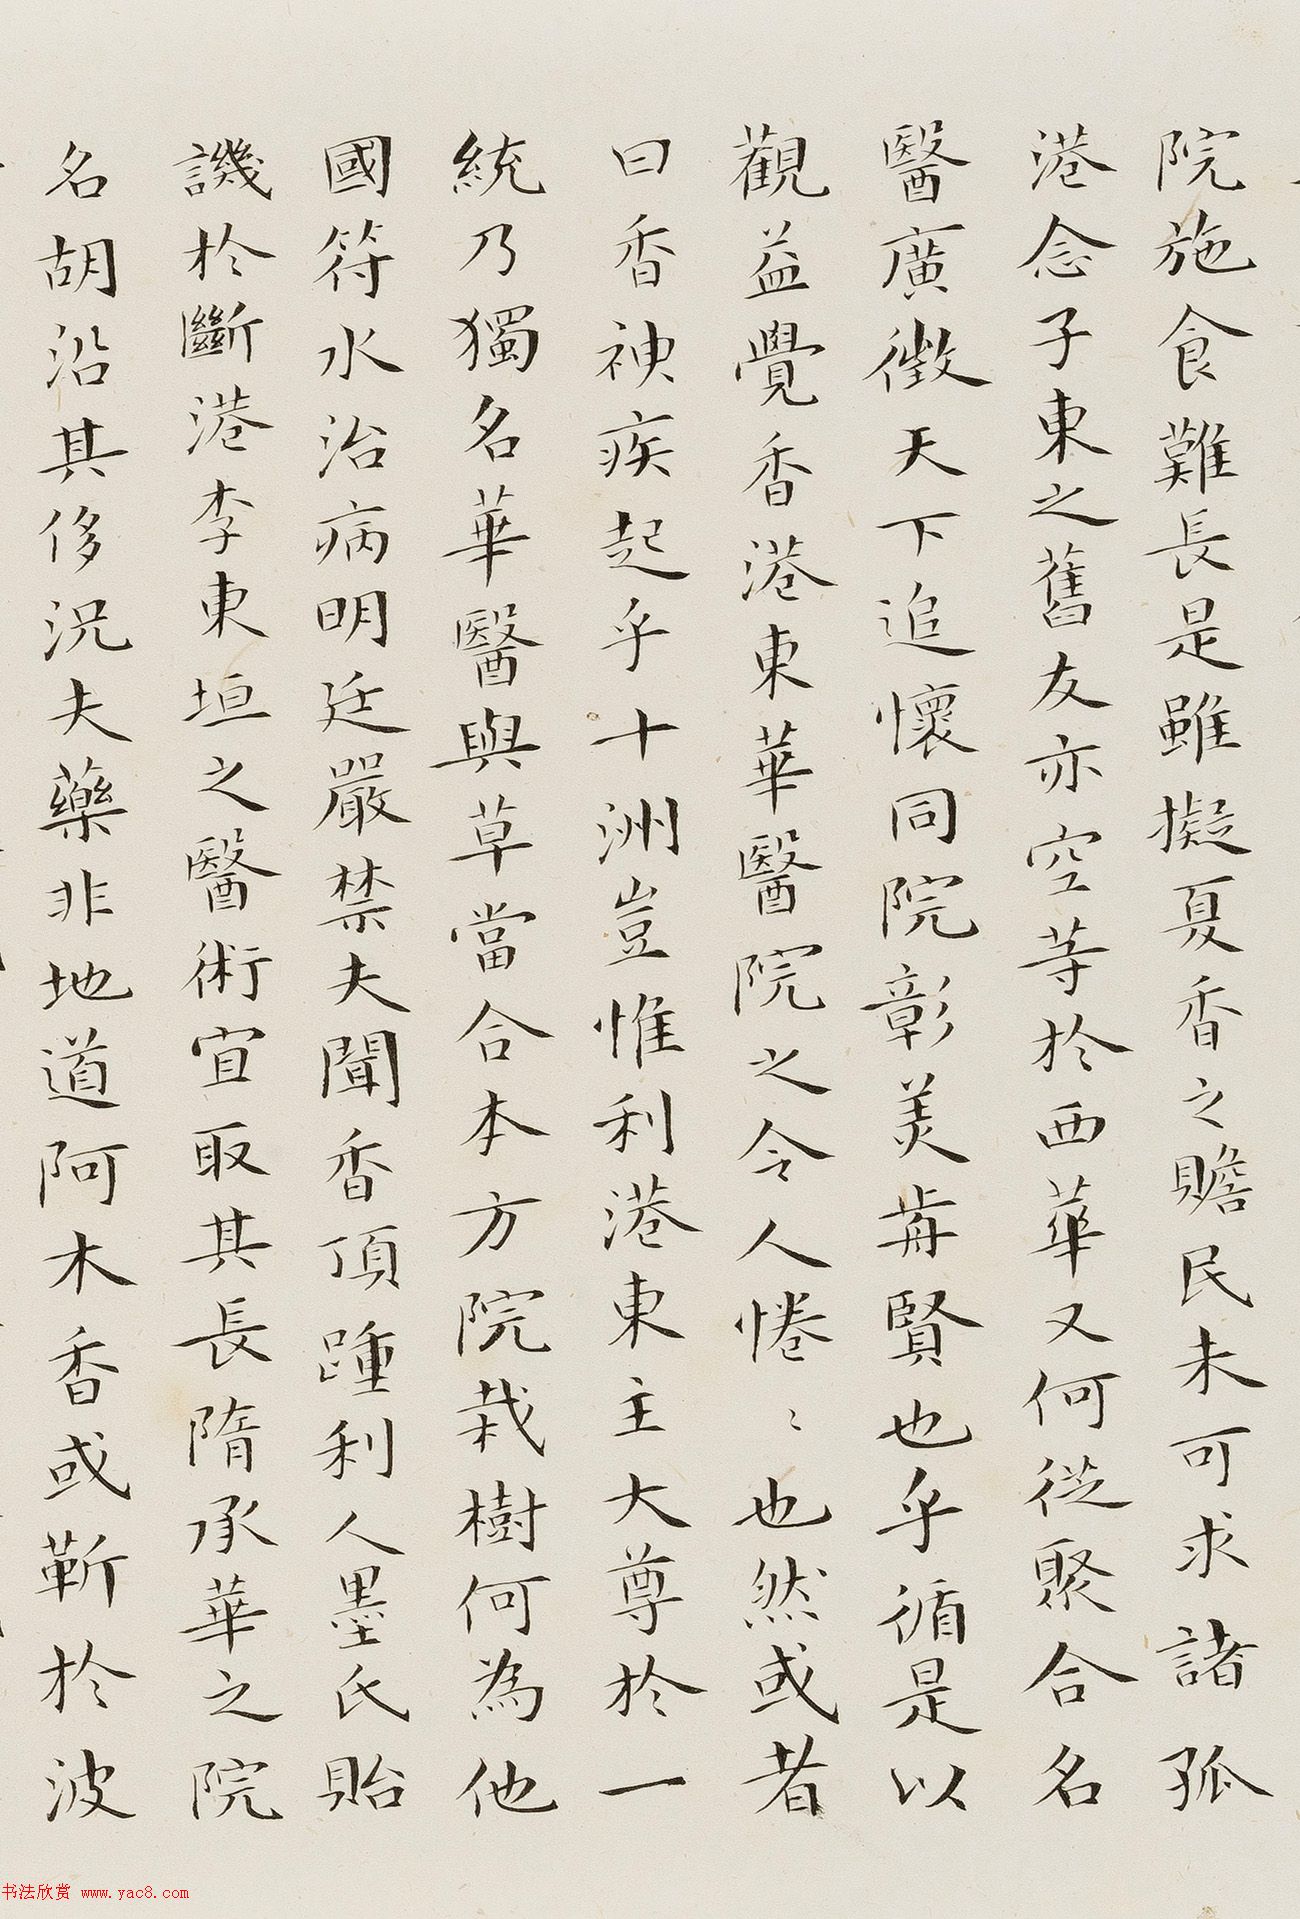 院施食難長是雖擬夏香之贍民未可求諸孤
港念子東之舊友亦空等於西華又何從聚合名
醫廣徵天下追懷同院彰美前賢也乎循是以
觀益覺香港東華醫院之令人惓〻也然或者
曰香祛疾起乎十洲豈惟利港東主大尊於一
統乃獨名華醫與草當合本方院栽樹何為他
國符水治病明廷嚴禁夫聞香頂踵利人墨氏貽
譏於斷港李東垣之醫術宜取其長隋承華之院
名胡沿其侈況夫藥非地道阿木香或蘄於波
书法欣赏 www.yac8.com